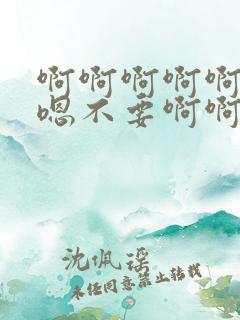 啊啊啊啊啊
嗯不要啊啊
沈佩瑶
未经同意禁止转载